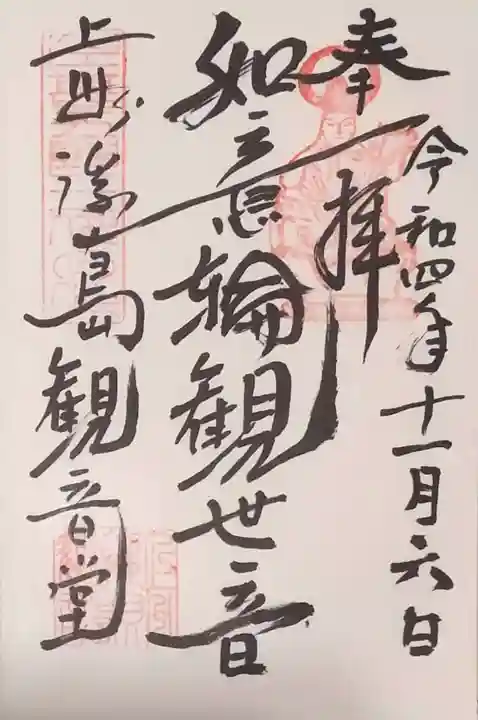 奉拝
令和四年十一月六日
如意輪観世音
上州島観音堂